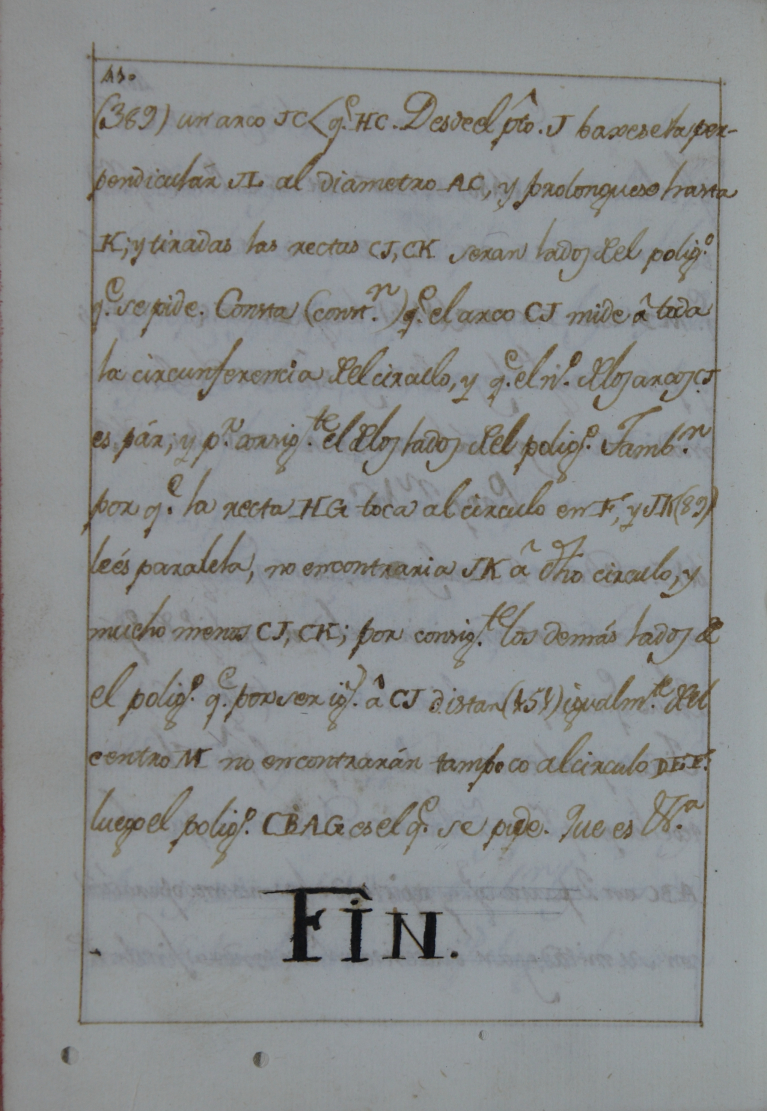 (389) un arco JC < q.e HC. Desde el pto. J baxese la per-
pendicular JL al diametro AC, y prolonguese hasta
K; y tiradas las rectas CJ, CK seran lados del polig.o
q.e se pide. Consta (const.n) q.e el arco CJ mide â toda
la circunferencia del circulo, y q.e el n.o de los arcos CJ
es pár; y p.r consig.te el de los lados del polig.o Tamb.n
por q.e la recta HG toca al circulo en F, y JK (89)
le és paralela, no encontraria JK â dho circulo, y
mucho menos CJ, CK; por consig.te los demás lados de
el polig.o q.e por ser ig.s â CJ distan (151) igualm.te del
centro M no encontrarán tampoco al circulo DEF.
luego el polig.o CBAG es el q.e se pide. Que es &.a
FÎN.